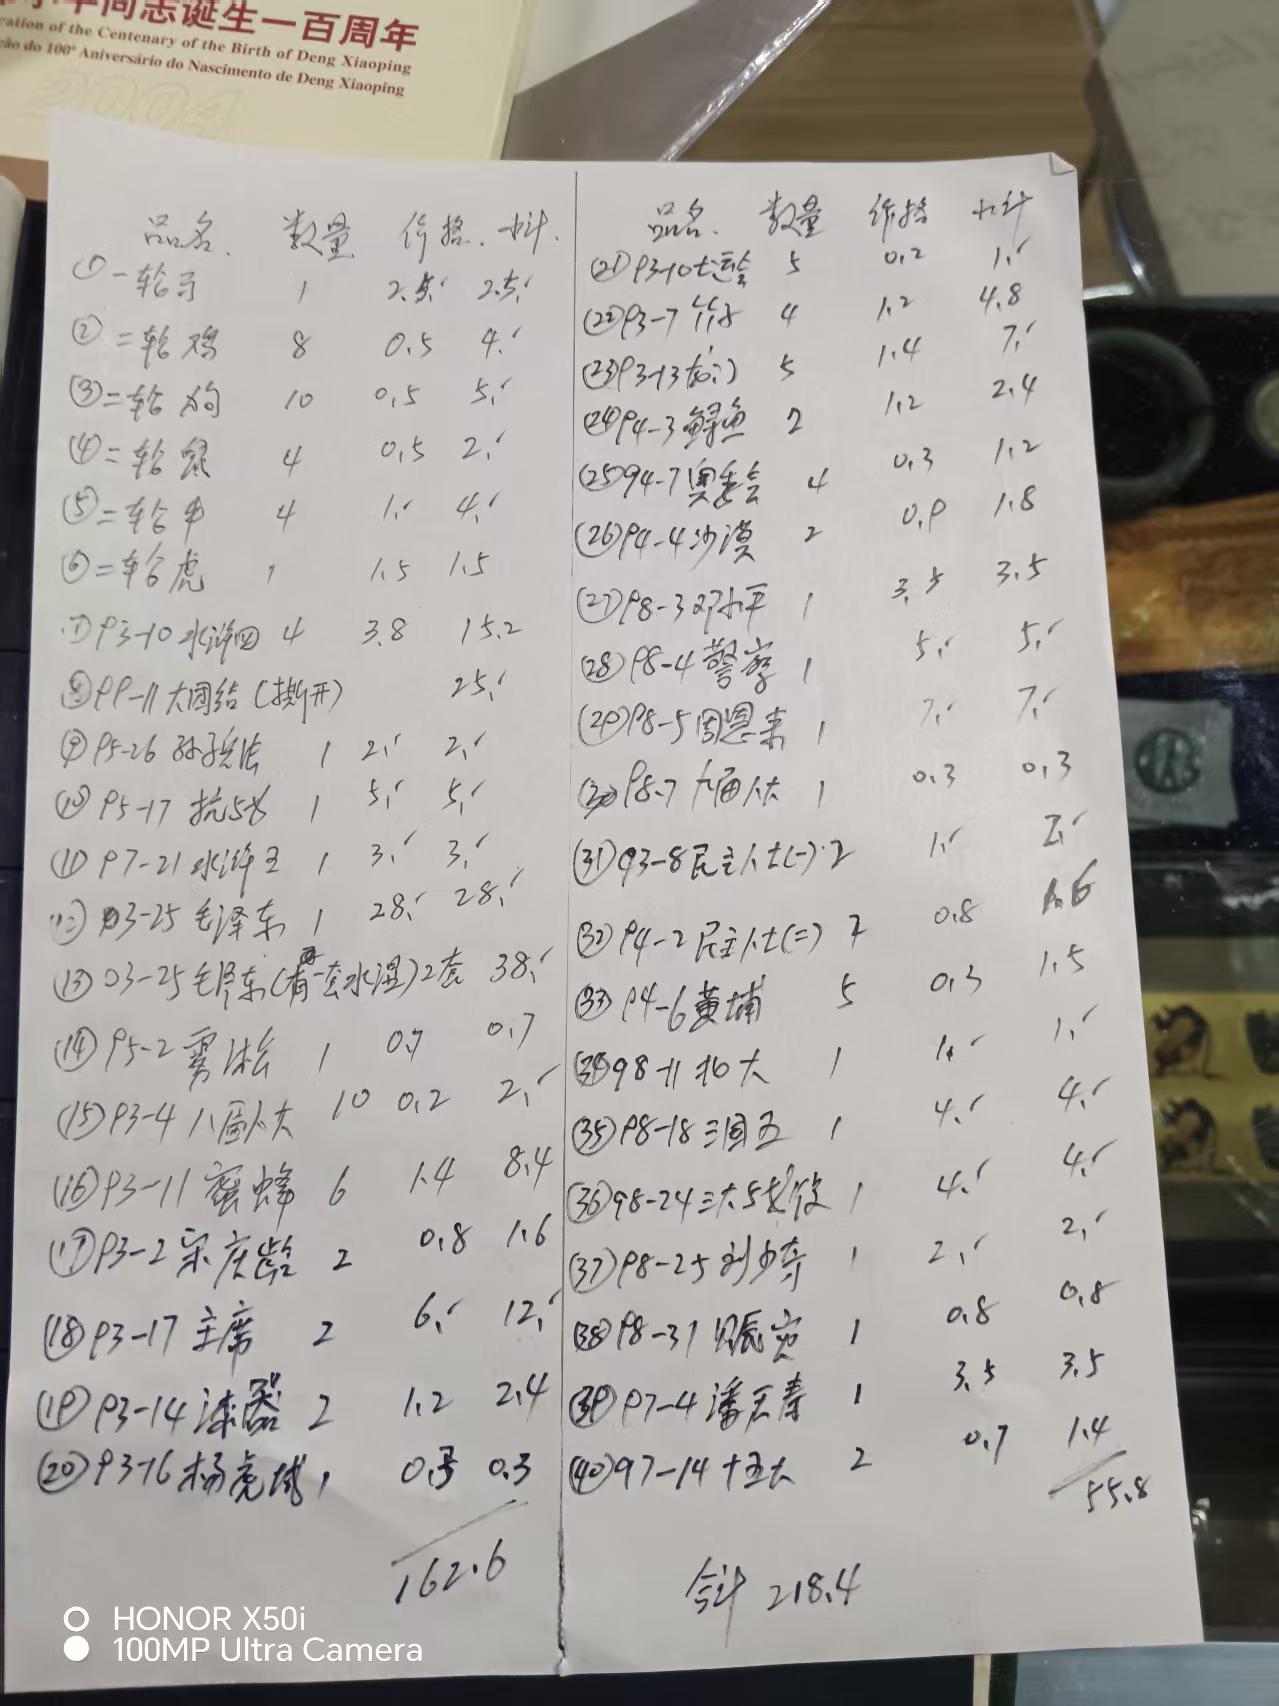 同志诞生一百周年
ration of the Centenary of the Birth of Deng Xiaoping
ção do 100º Aniversário do Nascimento de Deng Xiaoping
2004
品名. 数量 价格. 小计.
①一轮 1 2.5 2.5
②二轮鸡 8 0.5 4.
③二轮狗 10 0.5 5.
④二轮鼠 4 0.5 2.
⑤二轮牛 4 1. 4.
⑥二轮虎 1 1.5 1.5
⑦93-10水浒四 4 3.8 15.2
⑧99-11大团结(撕开) 25.
⑨95-26孙子兵法 1 2. 2.
⑩95-17抗战 1 5. 5.
⑪97-21水浒五 1 3. 3.
⑫03-25毛泽东 1 28. 28.
⑬03-25毛泽东(有一套水湿)2套 38.
⑭95-2雾凇 1 0.7 0.7
(15)93-4八届人大 10 0.2 2.
(16)93-11蜜蜂 6 1.4 8.4
(17)93-2宋庆龄 2 0.8 1.6
(18)93-17主席 2 6. 12.
(19)93-14漆器 2 1.2 2.4
(20)93-16杨虎城 1 0.3 0.3
162.6
品名. 数量 价格 小计
(21)93-10 5 0.2 1.
(22)93-7竹子 4 1.2 4.8
(23)93-13龙门 5 1.4 7.
(24)94-3鲟鱼 2 1.2 2.4
(25)94-7奥委会 4 0.3 1.2
(26)94-4沙漠 2 0.9 1.8
(27)98-3邓小平 1 3.5 3.5
(28)98-4警察 1 5. 5.
(29)98-5周恩来 1 7. 7.
(30)98-7九届人大 1 0.3 0.3
(31)93-8民主人士(一)·2 1. 2.
(32)94-2民主人士(二) 2 0.8 1.6
(33)94-6黄埔 5 0.3 1.5
(34)98-11北大 1 1. 1.
(35)98-18三国五 1 4. 4.
(36)98-24三大战役 1 4. 4.
(37)98-25刘少奇 1 2. 2.
(38)98-31赈灾 1 0.8 0.8
(39)97-4潘天寿 1 3.5 3.5
(40)97-14十五大 2 0.7 1.4
55.8
合计 218.4
HONOR X50i
100MP Ultra Camera